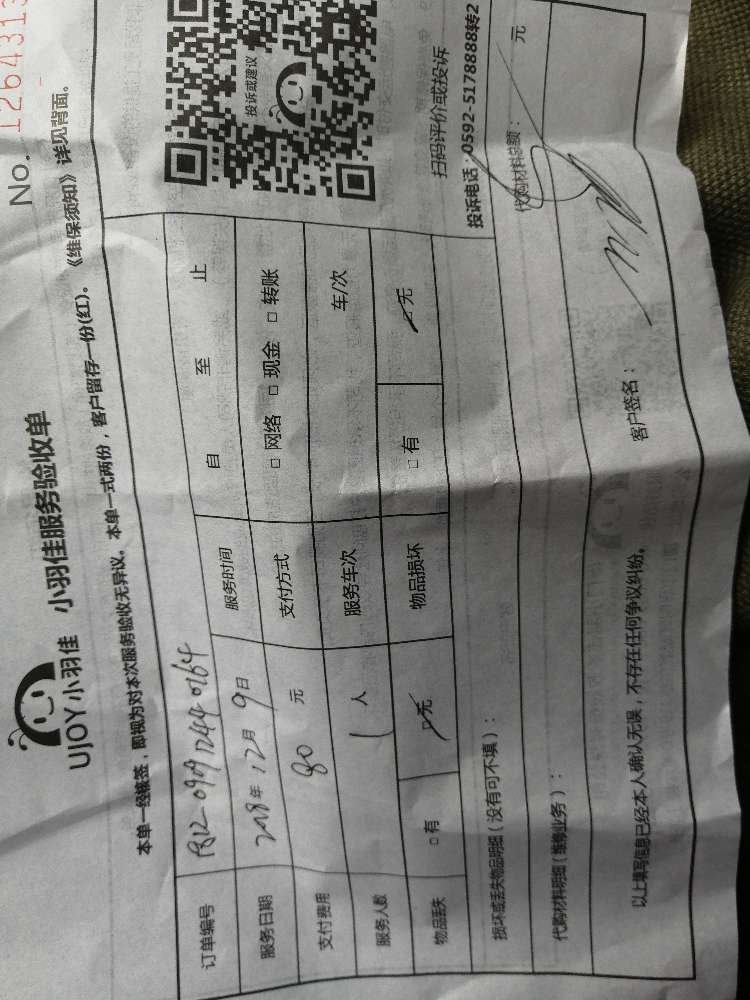 No. 1264313
UJOY小羽佳 小羽佳服务验收单
本单一经接签，即视为对本次服务验收无异议。本单一式两份，客户留存一份(红)。《维保须知》详见背面。
订单编号 1812 0909 1244 0164
服务日期 2018年12月9日 服务时间 自 至 止
支付费用 80 元 支付方式 □ 网络 □ 现金 □ 转账
服务人数 1 人 服务车次 车/次
物品丢失 □ 有 □ 无 物品损坏 □ 有 □ 无
投诉或建议
扫码评价或投诉
投诉电话：0592-5178888转2
损坏或丢失物品明细（没有可不填）：
代购材料明细（维修业务）： 代购材料总额： 元
以上填写信息已经本人确认无误，不存在任何争议纠纷。 客户签名：